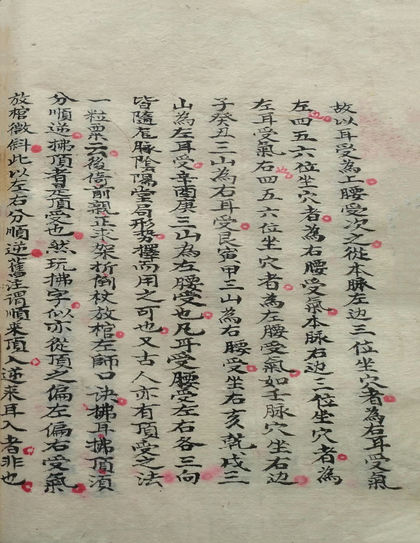 故以耳受為上腰受次之從本脉左边三位坐穴者為右耳受氣
左四五六位坐穴者為右腰受氣本脉右边三位坐穴者為
左耳受氣右四五六位坐穴者為左腰受氣如壬脉穴坐右边
子癸丑三山為右耳受艮寅甲三山為右腰受坐右亥乾戌三
山為左耳受辛酉庚三山為左腰受也凡耳受腰受左右各三向
皆隨龍脉陰陽堂局形势擇而用之可也又古人亦有頂受之法
一粒粟云後倚前親正求架折倒杖放棺左師口訣拂耳拂頂須
分順逆拂頂者是頂受也然玩拂字似亦從頂之偏左偏右受氣
放棺微斜此以左右分順逆舊注謂順來頂入逆來耳入者非也